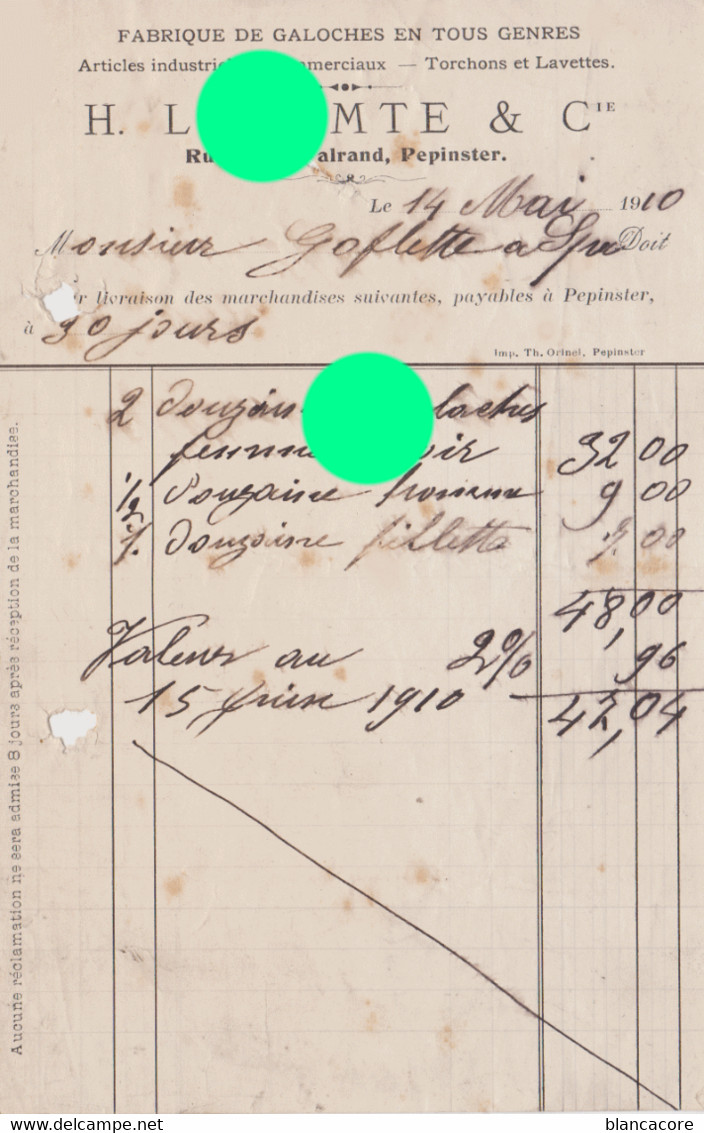 FABRIQUE DE GALOCHES EN TOUS GENRES
Articles industri merciaux — Torchons et Lavettes.
H. L MTE & CIE
Ru alrand, Pepinster.
Le 14 Mai 1910
Monsieur Goflette a Spa Doit
r livraison des marchandises suivantes, payables à Pepinster,
à 30 jours
Imp. Th. Orinel, Pepinster
2 douzain loches
femme oir 32 00
1/2 Douzaine 9 00
douzaine fillette 7.00
48,00
Valeur au 2% 96
15 juin 1910 47,04
Aucune réclamation ne sera admise 8 jours après réception de la marchandise.
blancacore